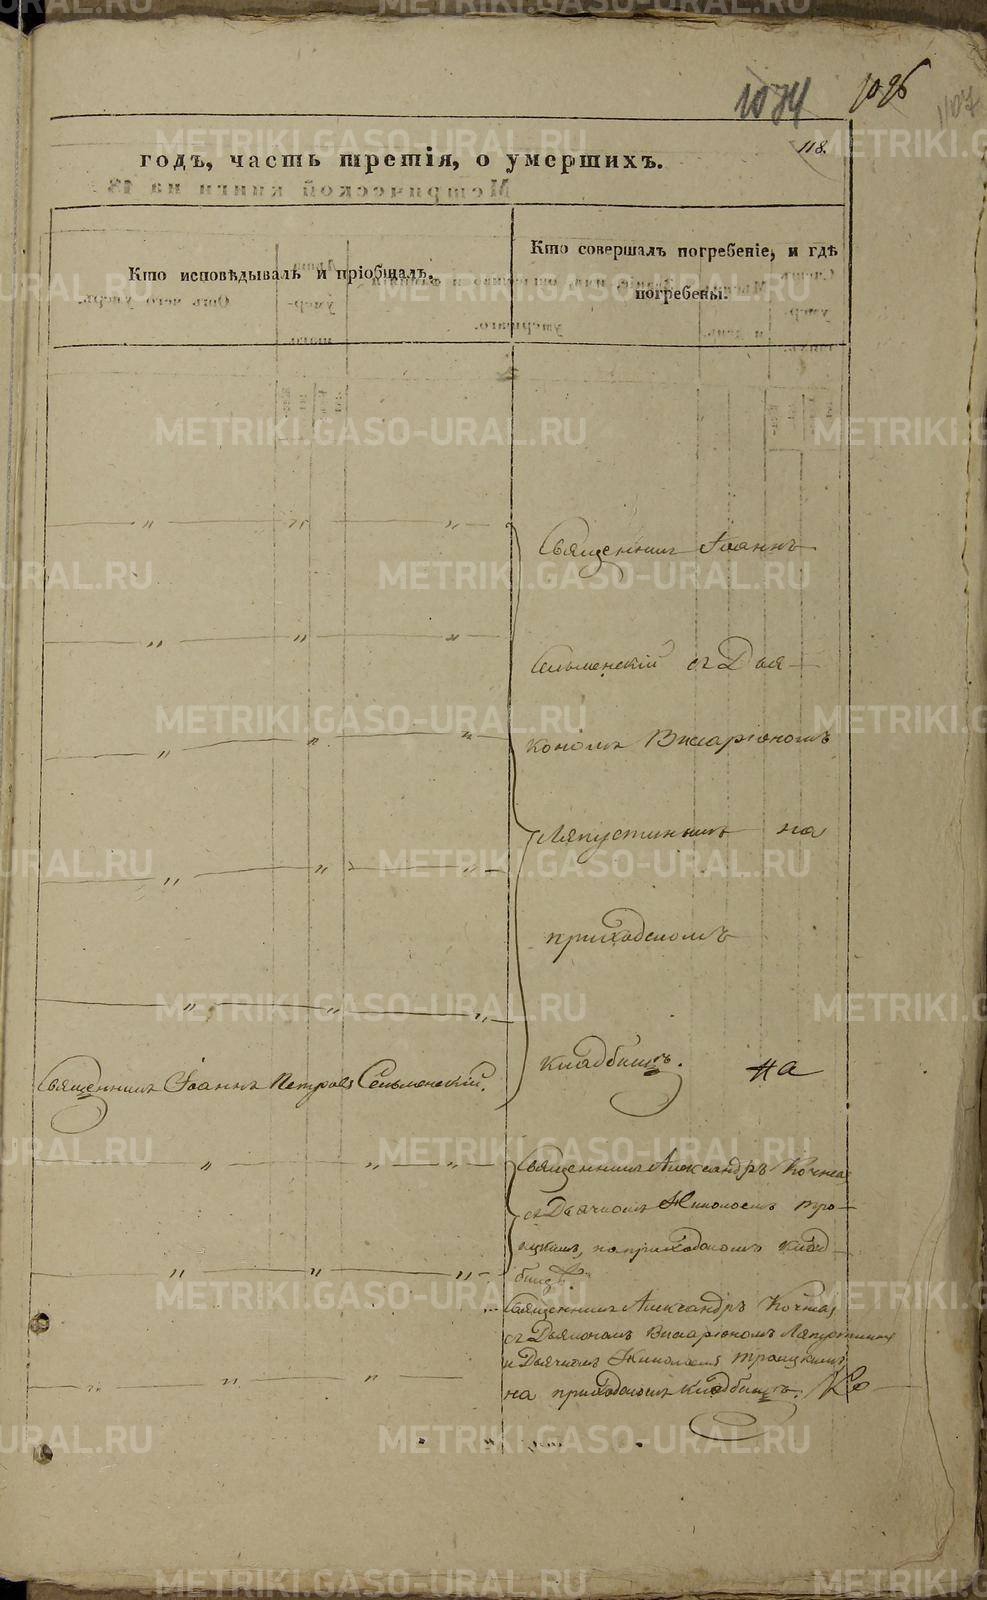 1074
1096
1107
118.
годъ, часть третія, о умершихъ.
Кто исповѣдывалъ и пріобщалъ.
Кто совершалъ погребеніе, и гдѣ
погребены.
Священникъ Іоаннъ
Сельменскій съ Діа-
кономъ Висаріономъ
Ляпустинымъ на
приходскомъ
кладбищѣ.
на
Священникъ Іоаннъ Петровъ Сельменскій.
Священникъ Александръ Кочнев
съ Дьячкомъ Николаемъ Тро-
ицкимъ, на приходскомъ клад-
бищѣ.
Священникъ Александръ Кочнев
съ Дьякономъ Висаріономъ Ляпустиным
и Дьячкомъ Николаемъ Троицкимъ
на приходскомъ кладбищѣ.
METRIKI.GASO-URAL.RU